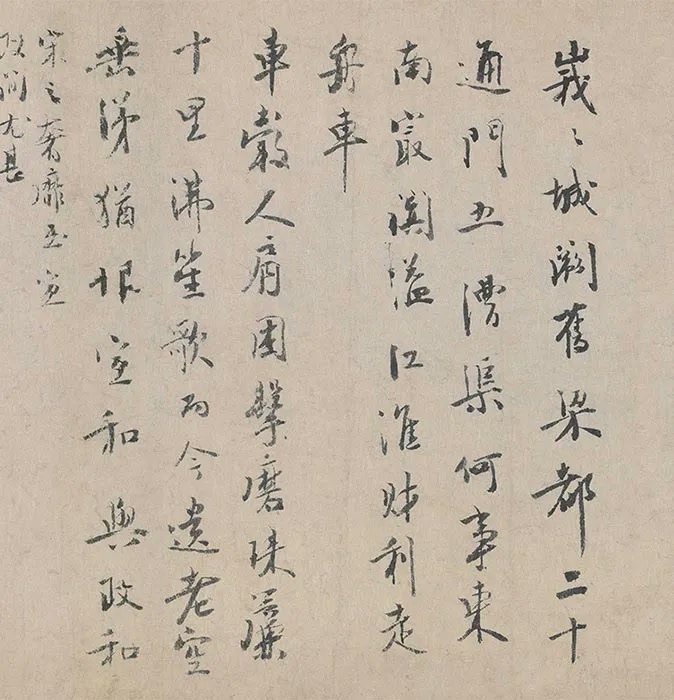 峩〻城闕舊梁都二十
通門五漕渠何事東
南最闐溢江淮財利走
舟車
車轂人肩困擊磨珠簾
十里沸笙歌而今遺老空
垂涕猶恨宣和與政和
宋之奢靡至宣
政間尤甚